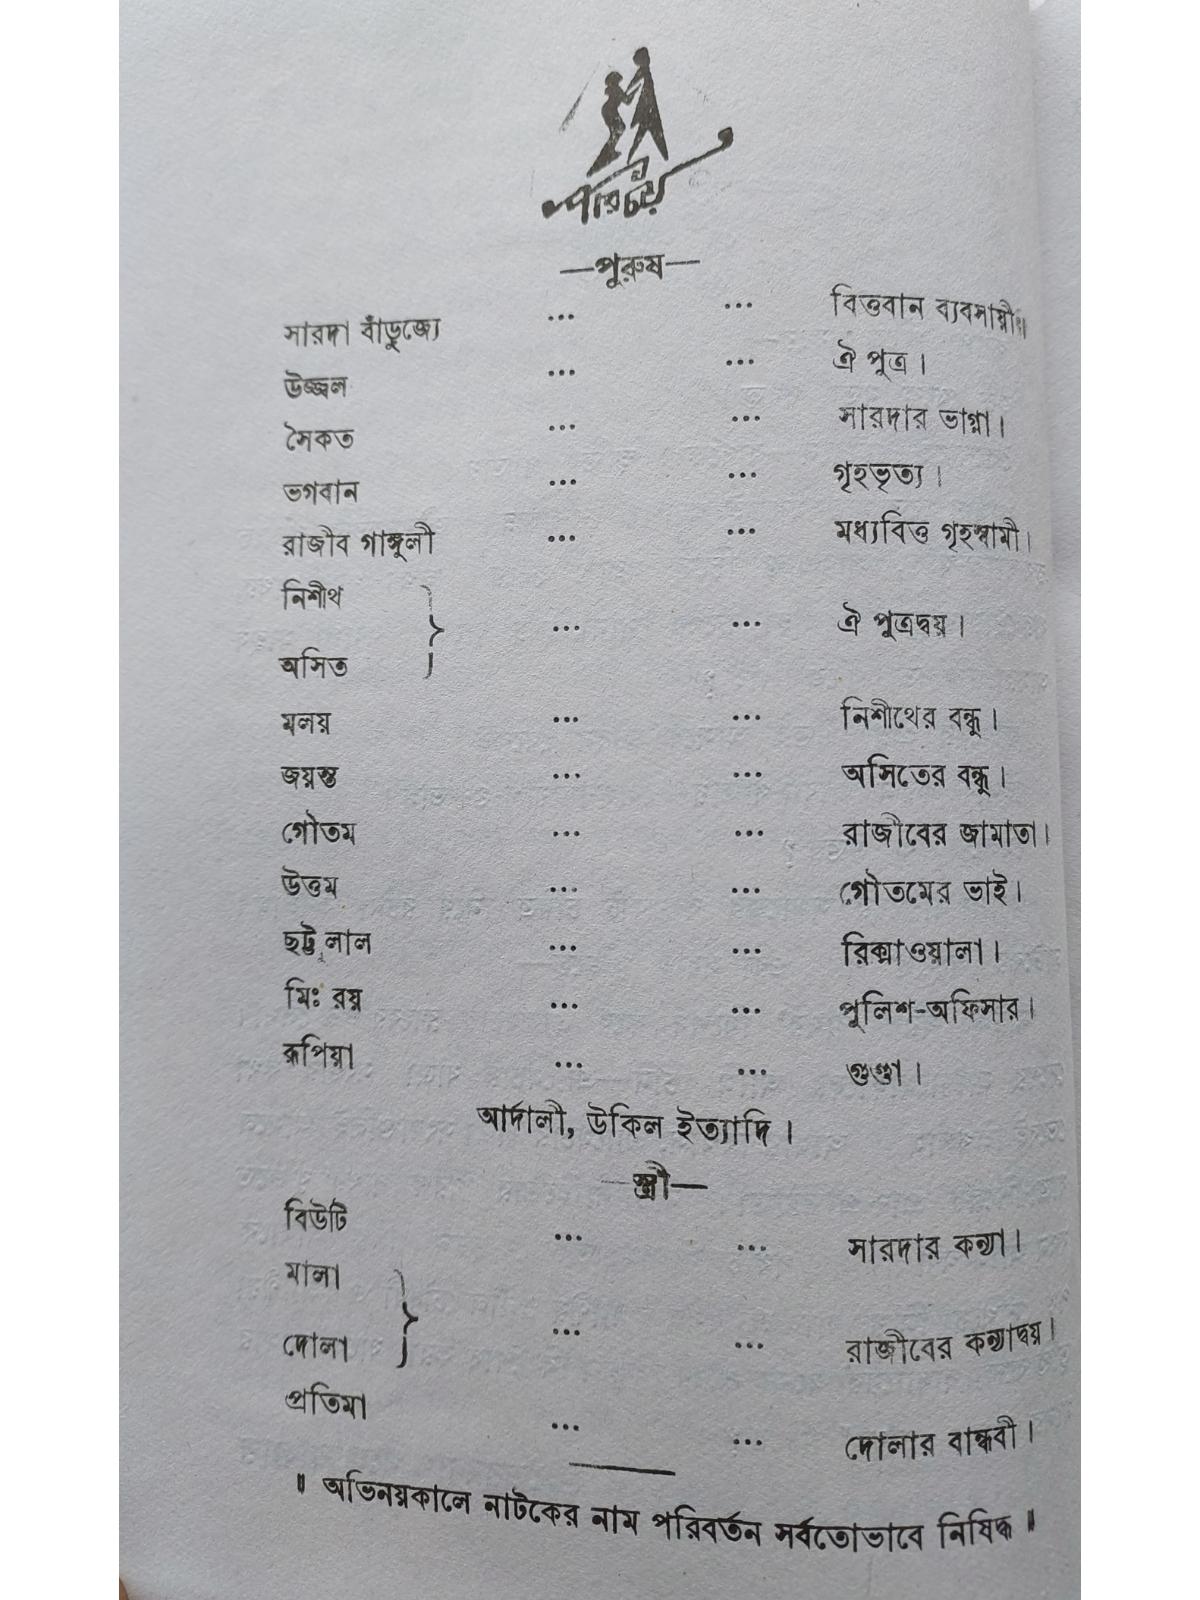 পরিচয়
—পুরুষ—
সারদা বাঁড়ুজ্যে ... ... বিত্তবান ব্যবসায়ী।
উজ্জল ... ... ঐ পুত্র।
সৈকত ... ... সারদার ভাগ্না।
ভগবান ... ... গৃহভৃত্য।
রাজীব গাঙ্গুলী ... ... মধ্যবিত্ত গৃহস্বামী।
নিশীথ
অসিত } ... ... ঐ পুত্রদ্বয়।
মলয় ... ... নিশীথের বন্ধু।
জয়ন্ত ... ... অসিতের বন্ধু।
গৌতম ... ... রাজীবের জামাতা।
উত্তম ... ... গৌতমের ভাই।
ছট্টুলাল ... ... রিক্সাওয়ালা।
মিঃ রয় ... ... পুলিশ-অফিসার।
রূপিয়া ... ... গুণ্ডা।
আর্দালী, উকিল ইত্যাদি।
—স্ত্রী—
বিউটি ... ... সারদার কন্যা।
মালা
দোলা } ... ... রাজীবের কন্যাদ্বয়।
প্রতিমা ... ... দোলার বান্ধবী।
॥ অভিনয়কালে নাটকের নাম পরিবর্তন সর্বতোভাবে নিষিদ্ধ ॥